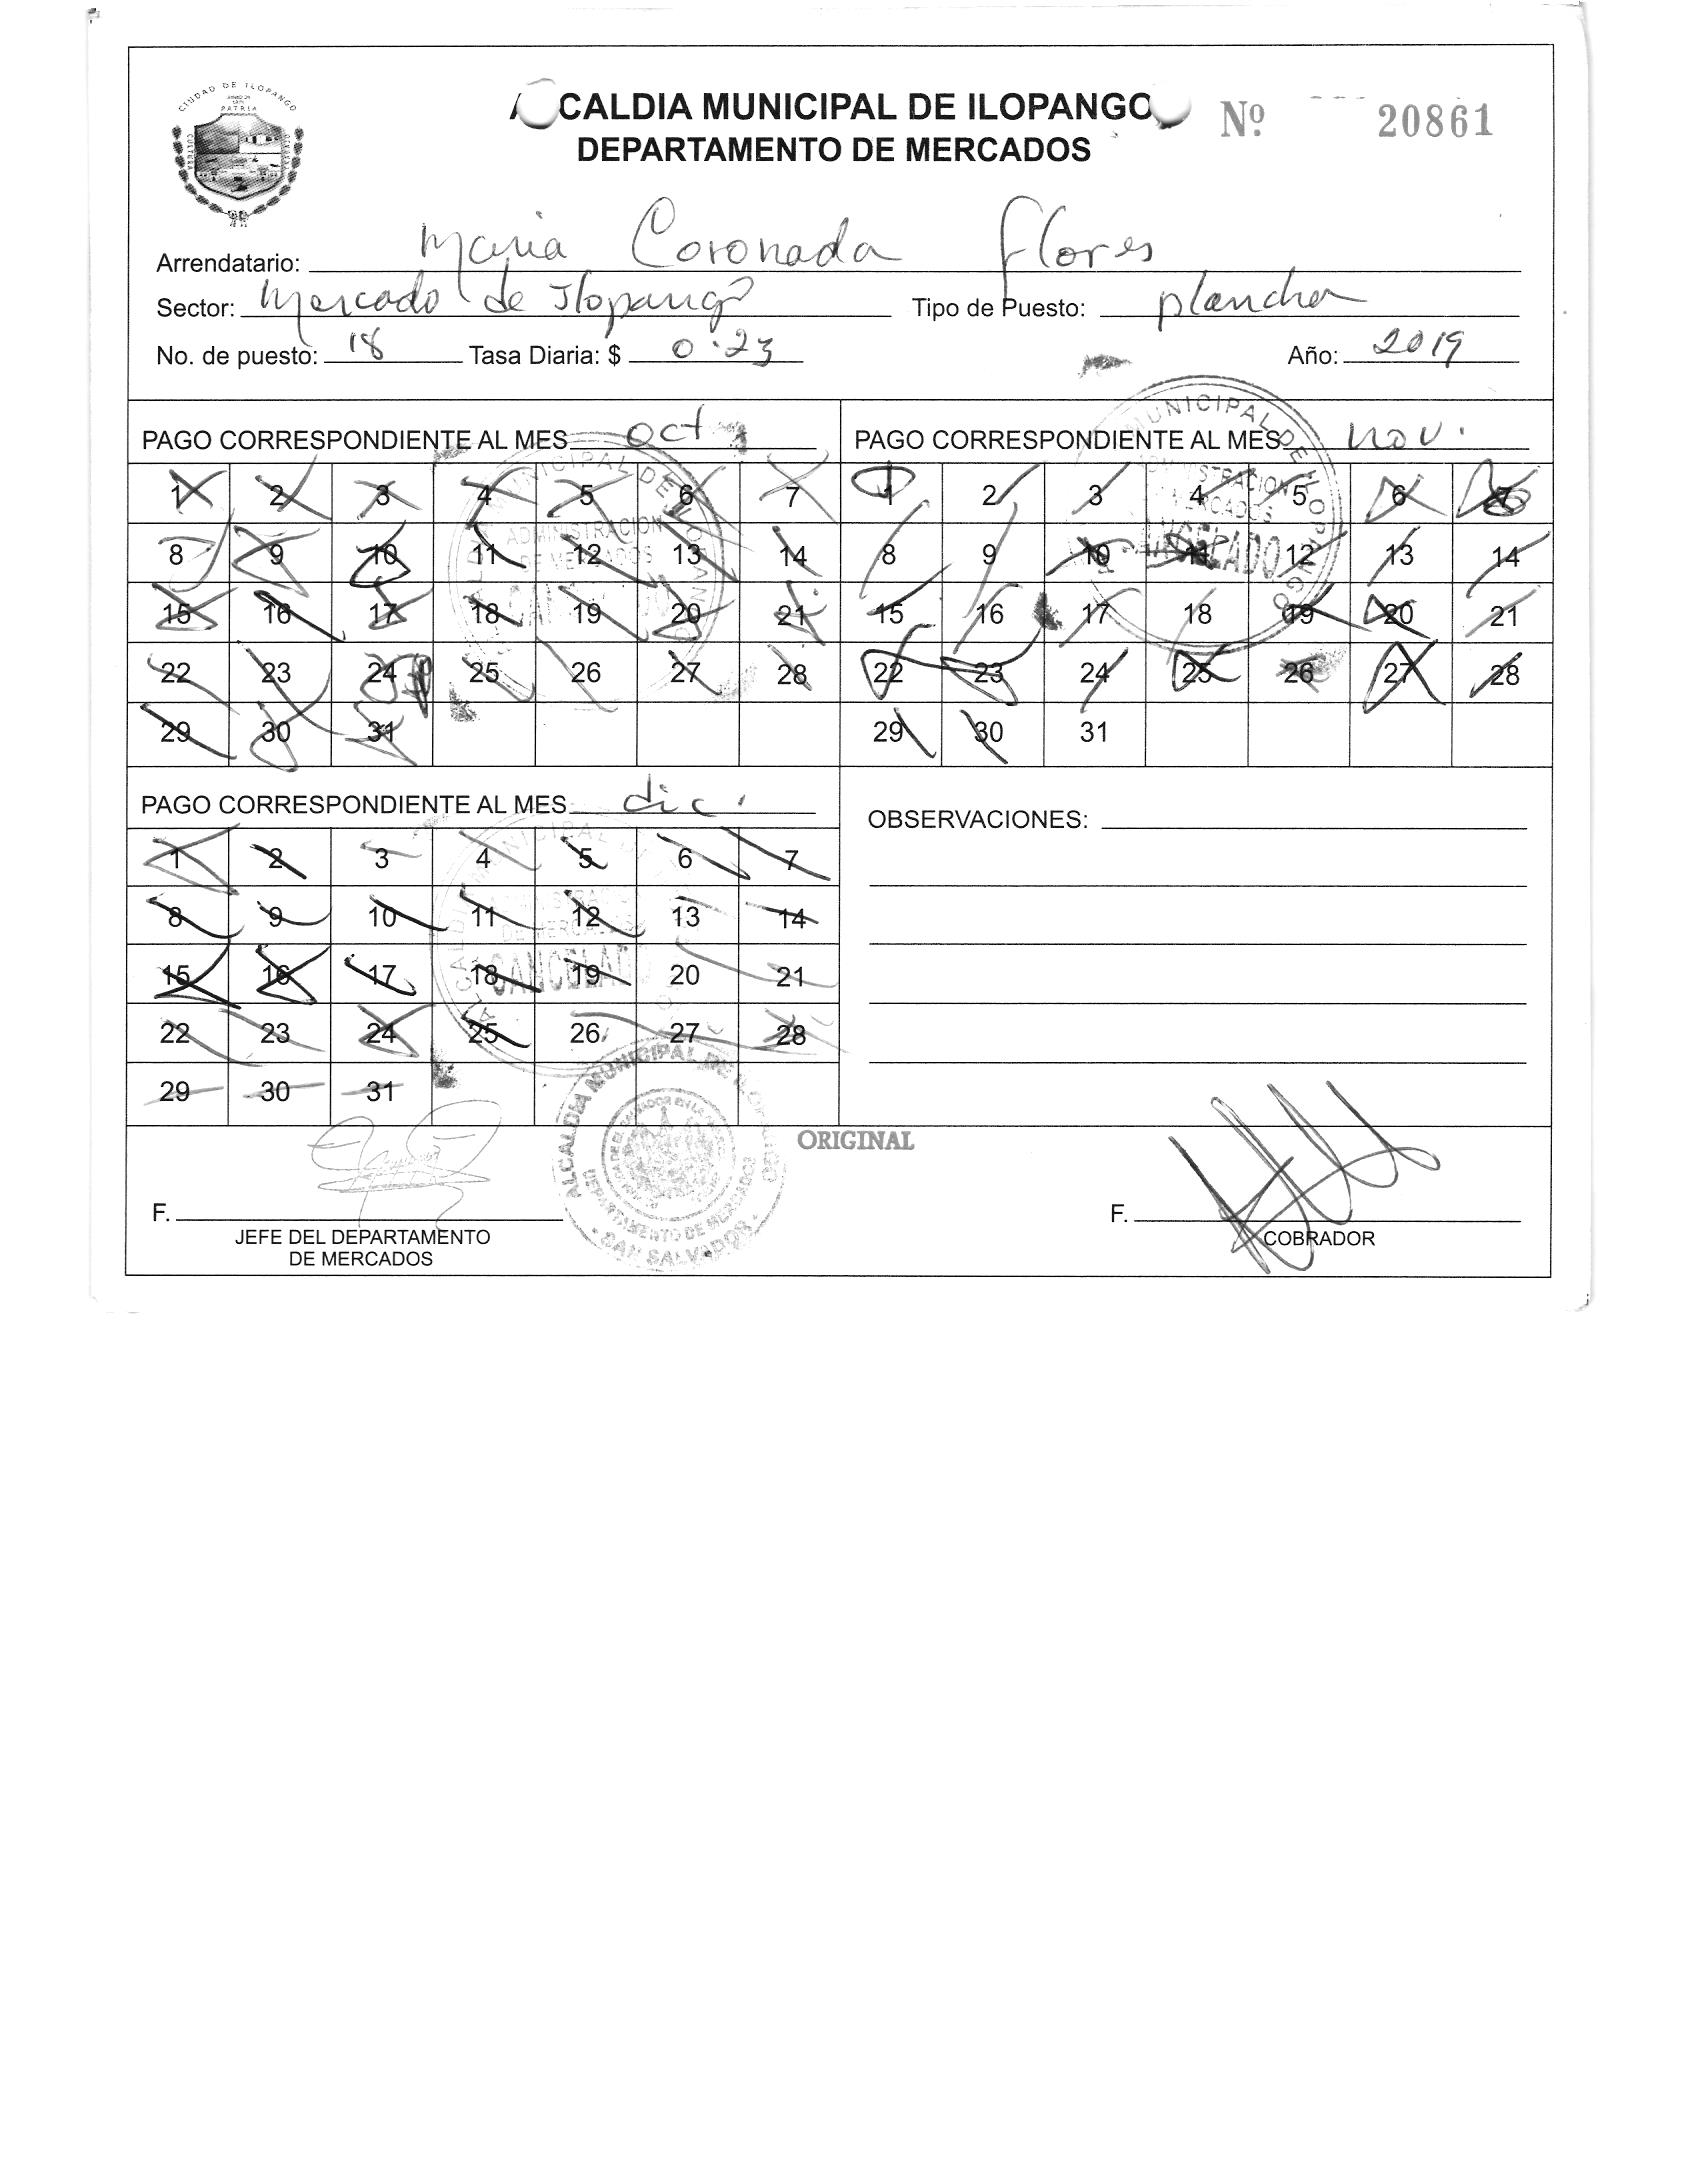 CIUDAD DE ILOPANGO
PATRIA
CULTURA
ALCALDIA MUNICIPAL DE ILOPANGO
DEPARTAMENTO DE MERCADOS
Nº 20861
Arrendatario: Maria Coronada Flores
Sector: Mercado de Ilopango Tipo de Puesto: plancha
No. de puesto: 18 Tasa Diaria: $ 0.23 Año: 2019
PAGO CORRESPONDIENTE AL MES oct
1 2 3 4 5 6 7
8 9 10 11 12 13 14
15 16 17 18 19 20 21
22 23 24 25 26 27 28
29 30 31
MUNICIPAL DE ILOPANGO
ADMINISTRACION
DE MERCADOS
PAGO CORRESPONDIENTE AL MES nov.
1 2 3 4 5 6 7
8 9 10 11 12 13 14
15 16 17 18 19 20 21
22 23 24 25 26 27 28
29 30 31
MUNICIPAL DE ILOPANGO
ADMINISTRACION
MERCADOS
CANCELADO
PAGO CORRESPONDIENTE AL MES dic.
1 2 3 4 5 6 7
8 9 10 11 12 13 14
15 16 17 18 19 20 21
22 23 24 25 26 27 28
29 30 31
ALCALDIA MUNICIPAL
DE MERCADOS
CANCELADO
OBSERVACIONES:
ORIGINAL
ALCALDIA MUNICIPAL DE ILOPANGO
DEPARTAMENTO DE MERCADOS
SAN SALVADOR
F.
JEFE DEL DEPARTAMENTO
DE MERCADOS
F.
COBRADOR